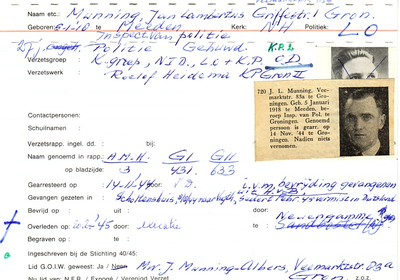 Naam etc.: Munning, Jan Lambertus Griffestr. 1 Gron.
Geboren: 5-1-18 te Meeden Kerk: NH Politiek: LO
Inspect. van politie
Politie Gebuwd K.P.L
Verzetsgroep K-groep, N.I.D., L.O + K.P. O.D
Verzetswerk Roelof Heidema KP Gron II
720 J. L. Munning, Vee-
marktstr. 83a te Gro-
ningen. Geb. 5 Januari
1918 te Meeden, be-
roep Insp. van Pol. te
Groningen. Genoemd
persoon is gearr. op
14 Nov. '44 te Gro-
ningen. Nadien niets
vernomen.
Contactpersonen:
Schuilnaam
Verzetsrapp. ingel. dd. : bij:
Naam genoemd in rapp.: A.M.H. GI GII
op bladzijde: 3 431. 633
Gearresteerd op 14-11-44 door i.v.m. bevrijding gevangenen
Gevangen gezeten in: Scholtenshuis, sedert febr. 45 vermist in Duitsland
Bevrijd op : uit : door: Neuengamme
Overleden op '45 door: te:
Begraven op : te :
Ingeschreven bij de Stichting 40/45:
Lid G.O.I.W. geweest: Ja / Mevr. J. Munning-Albers, Veemarktstr. 83a
Gron.